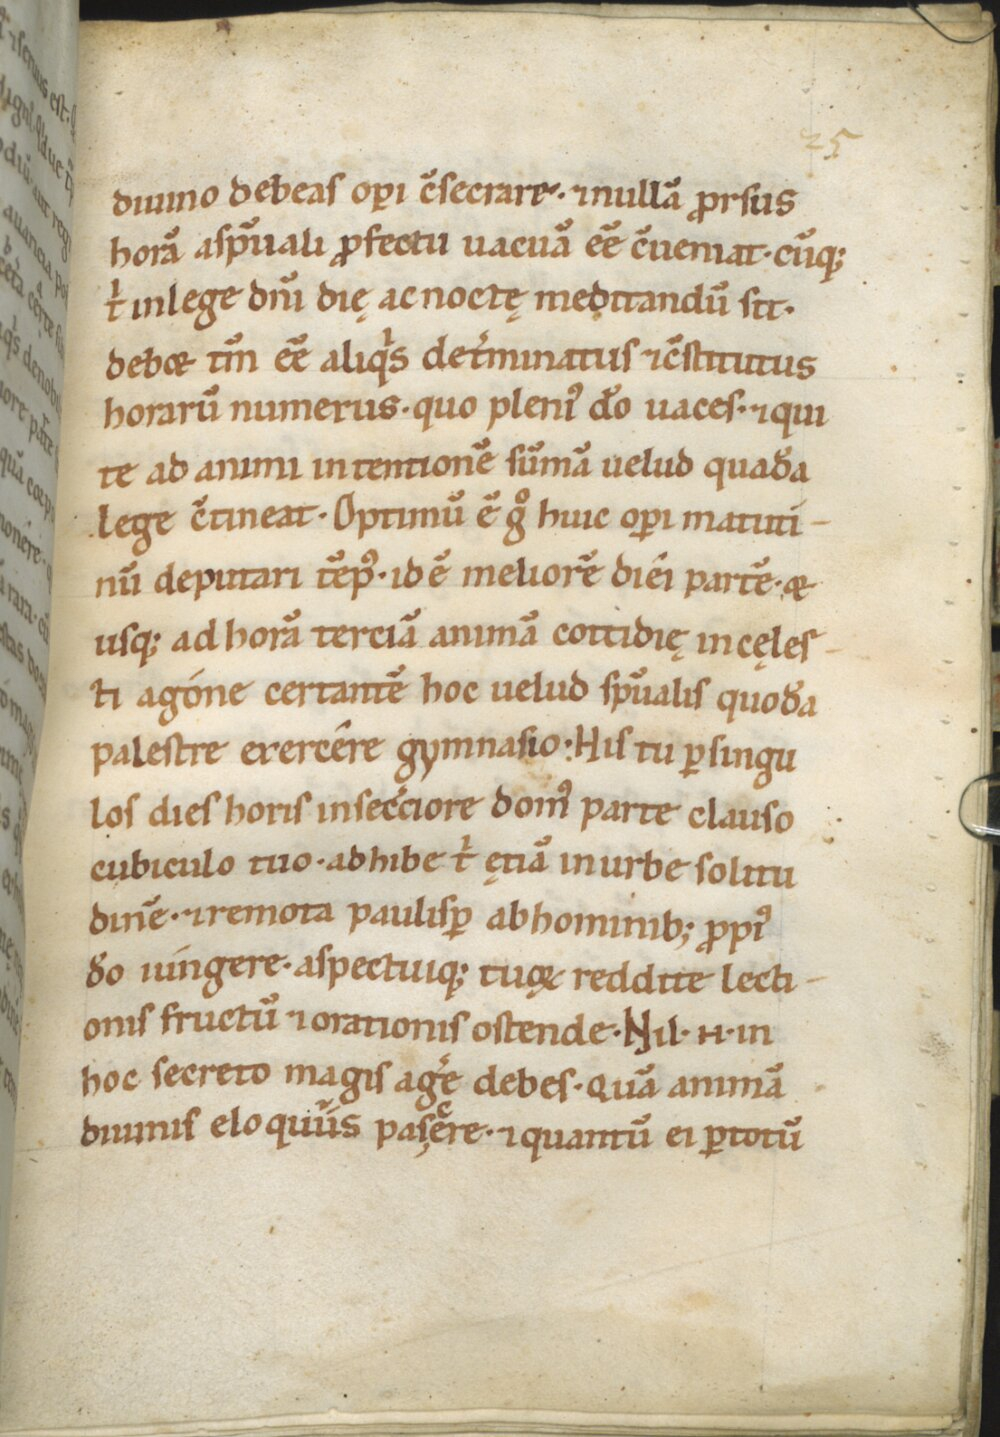 25
diuino debeas op̱i c̄secrare· ⁊ nullā ꝓrsus
horā a sp̄uali ꝓfectu uacuā eē c̄ueniat· cūq;
t̍ in lege dn̄i dię ac noctę meditandū sit·
debꝫ tm̄ eē aliq̍s det̄minatus ⁊ c̄stitutus
horarū numerus· quo pleni᾽ do̅ uaces· ⁊ qui
te ad animi intentionē sūmā uelud quadā
lege c̄tineat· Optimū ē g̊ huic op̱i matuti-
nū deputari tēp᾽· id ē meliorē diéi partē· &
usq; ad horā terciā animā cottidię in cęles-
ti agóne certantē hoc uelud sp̄ualis quodā
palestre exercére gymnasio· His tu ꝑ singu
los dies horis in sec̄ciore dom᾽ parte clauso
cubiculo tuo· adhibe t̍ ętiā in urbe solitu
dinē· ⁊ remota paulisꝑ ab hominib; ꝓpi᾽
do̅ iúngere· aspectuiq; tuo᷒ reddite lecti-
onis fructū ⁊ orationis ostende· Nil· H· in
hoc secreto magis aḡe debes· quā animā
diuinis eloquiis pascere· ⁊ quantū ei ꝑ totū